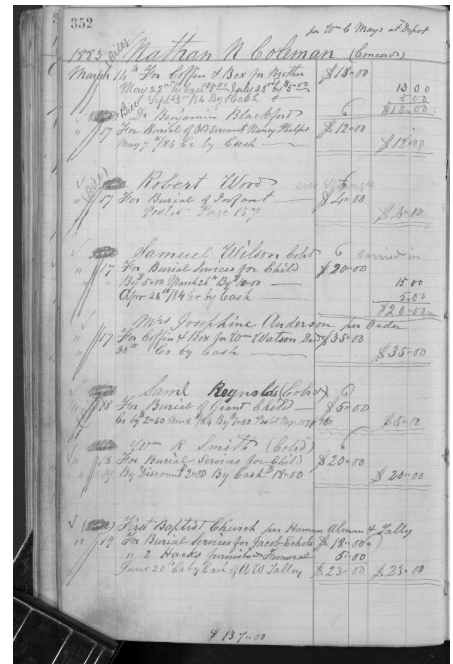 352
per Wm C Mays at Depot
1883 Nathan N Coleman (Concord)
March 14th For Coffin & Box for Brother $18.00
May 22nd By Cash 8.00 July 25 By 5.00 13 00
Sept 3rd /84 By Cash 5 5 00
$18.00
Dr Benjamin Blackford
" 17 For Burial of Old Servant Nancy Phelps $12.00
May 7th /84 Cr by Cash $12.00
Robert Wood
" 17 For Burial of Infant $4.00
Posted Page 157 $4.00
Samuel Wilson Cold carried in
" 17 For Burial Services for Child $20.00
" By 5.00 March 26th By 10.00 15 00
Apr 26th /84 Cr by Cash 5.00
$20.00
Mrs Josephine Anderson per Order
" 17 For Coffin & Box for Wm Watson Decd $35.00
30th Cr by Cash $35.00
Saml Reynolds (Cold)
" 18 For Burial of Grand Child $5.00
Cr by 2.50 Nov 8 /84 By 2.50 $5.00
Wm R Smith (Cold)
" 18 For Burial Services for Child $20.00
" 19 By Discount 2.00 By Cash 18.00 $20.00
First Baptist Church per Haman Alman & Talley
" 19 For Burial Services for Jacob Echols $18.00
" " 2 Hacks furnished Funeral 5.00
June 20th Cr by Cash of A W Talley $23.00 $23.00
$137.00